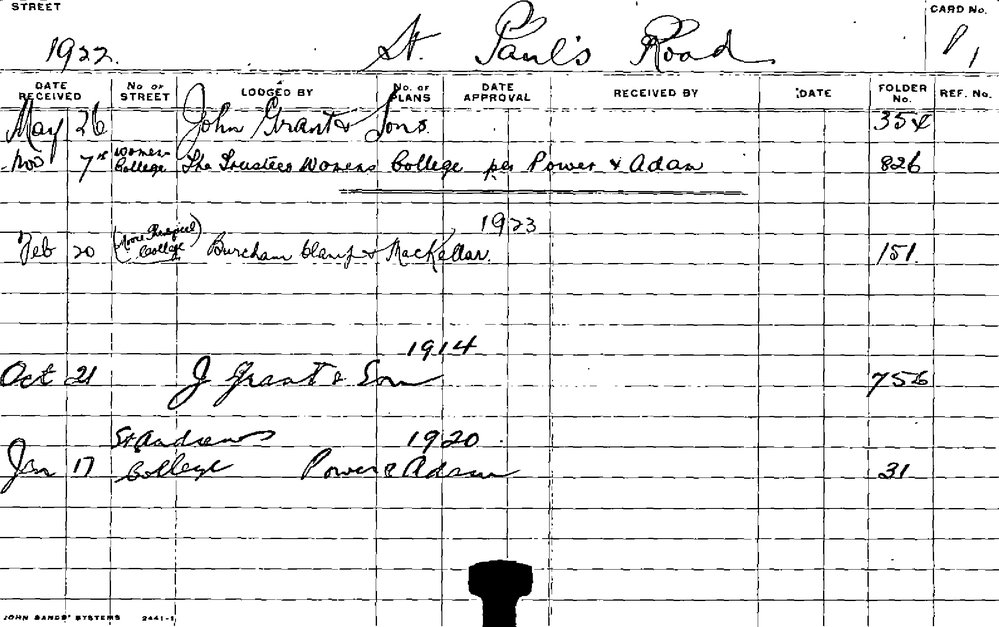 STREET
CARD No.
1922. St. Paul's Road P1
DATE RECEIVED No OR STREET LODGED BY No. OF PLANS DATE APPROVAL RECEIVED BY DATE FOLDER No. REF. No.
May 26 John Grant & Sons. 354
Nov 7th Womens College The Trustees Womens College per Power & Adam 826
1923
Feb 20 (Moore College) Burcham Clamp & MacKellar. 151.
1914
Oct 21 J Grant & Son 756
1920.
Jan 17 St Andrews College Power & Adam 31
JOHN SANDS' SYSTEMS 2441-1